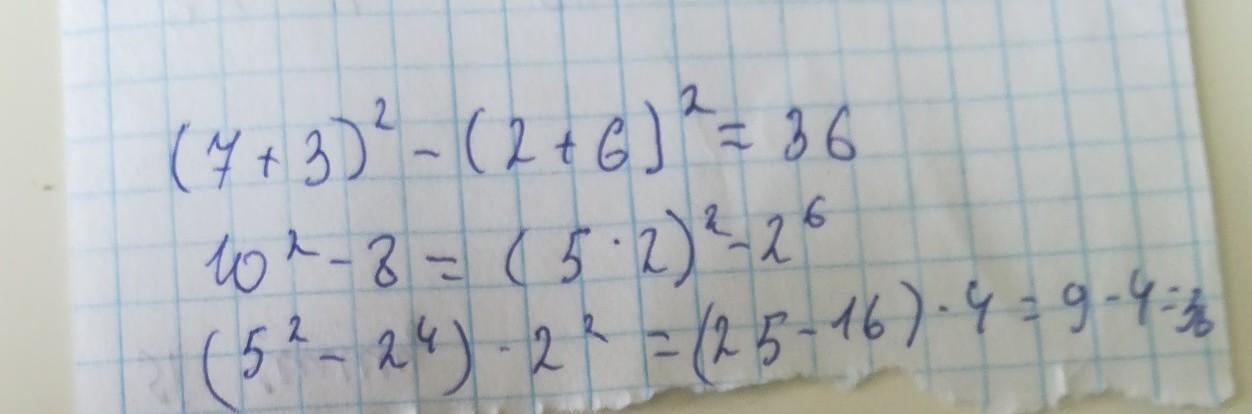 (7+3)² - (2+6)² = 36
10² - 8 = (5·2)² - 2⁶
(5² - 2⁴) · 2² = (25 - 16) · 4 = 9 · 4 = 36